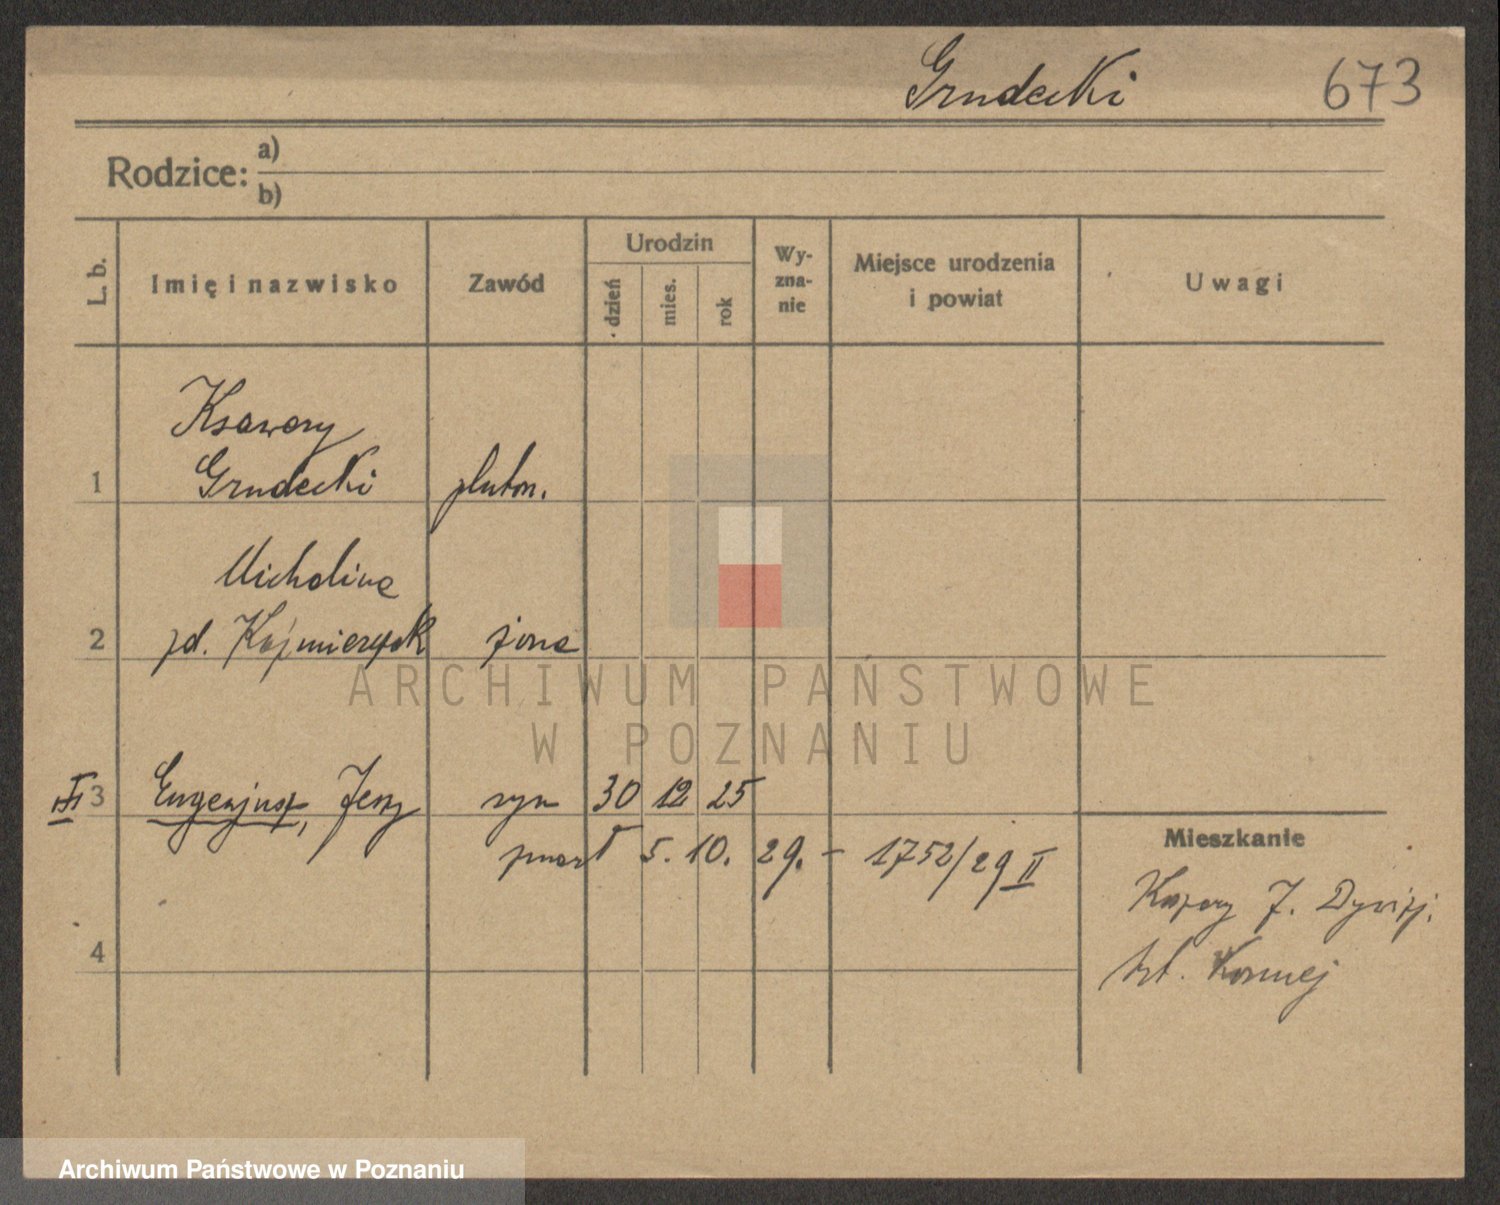 Grudecki 673
Rodzice: a)
b)
L. b.
Imię i nazwisko
Zawód
Urodzin
dzień
mies.
rok
Wy-
zna-
nie
Miejsce urodzenia
i powiat
Uwagi
Ksawery
1 Grudecki pluton.
Micholina
2 zd. Kaźmierczak żona
III 3 Eugenjusz, Jerzy syn 30 12 25
zmarł 5. 10. 29. – 1752/29 II
Mieszkanie
Koszary 7. Dywizj.
Art. Konnej
4
ARCHIWUM PAŃSTWOWE
W POZNANIU
Archiwum Państwowe w Poznaniu